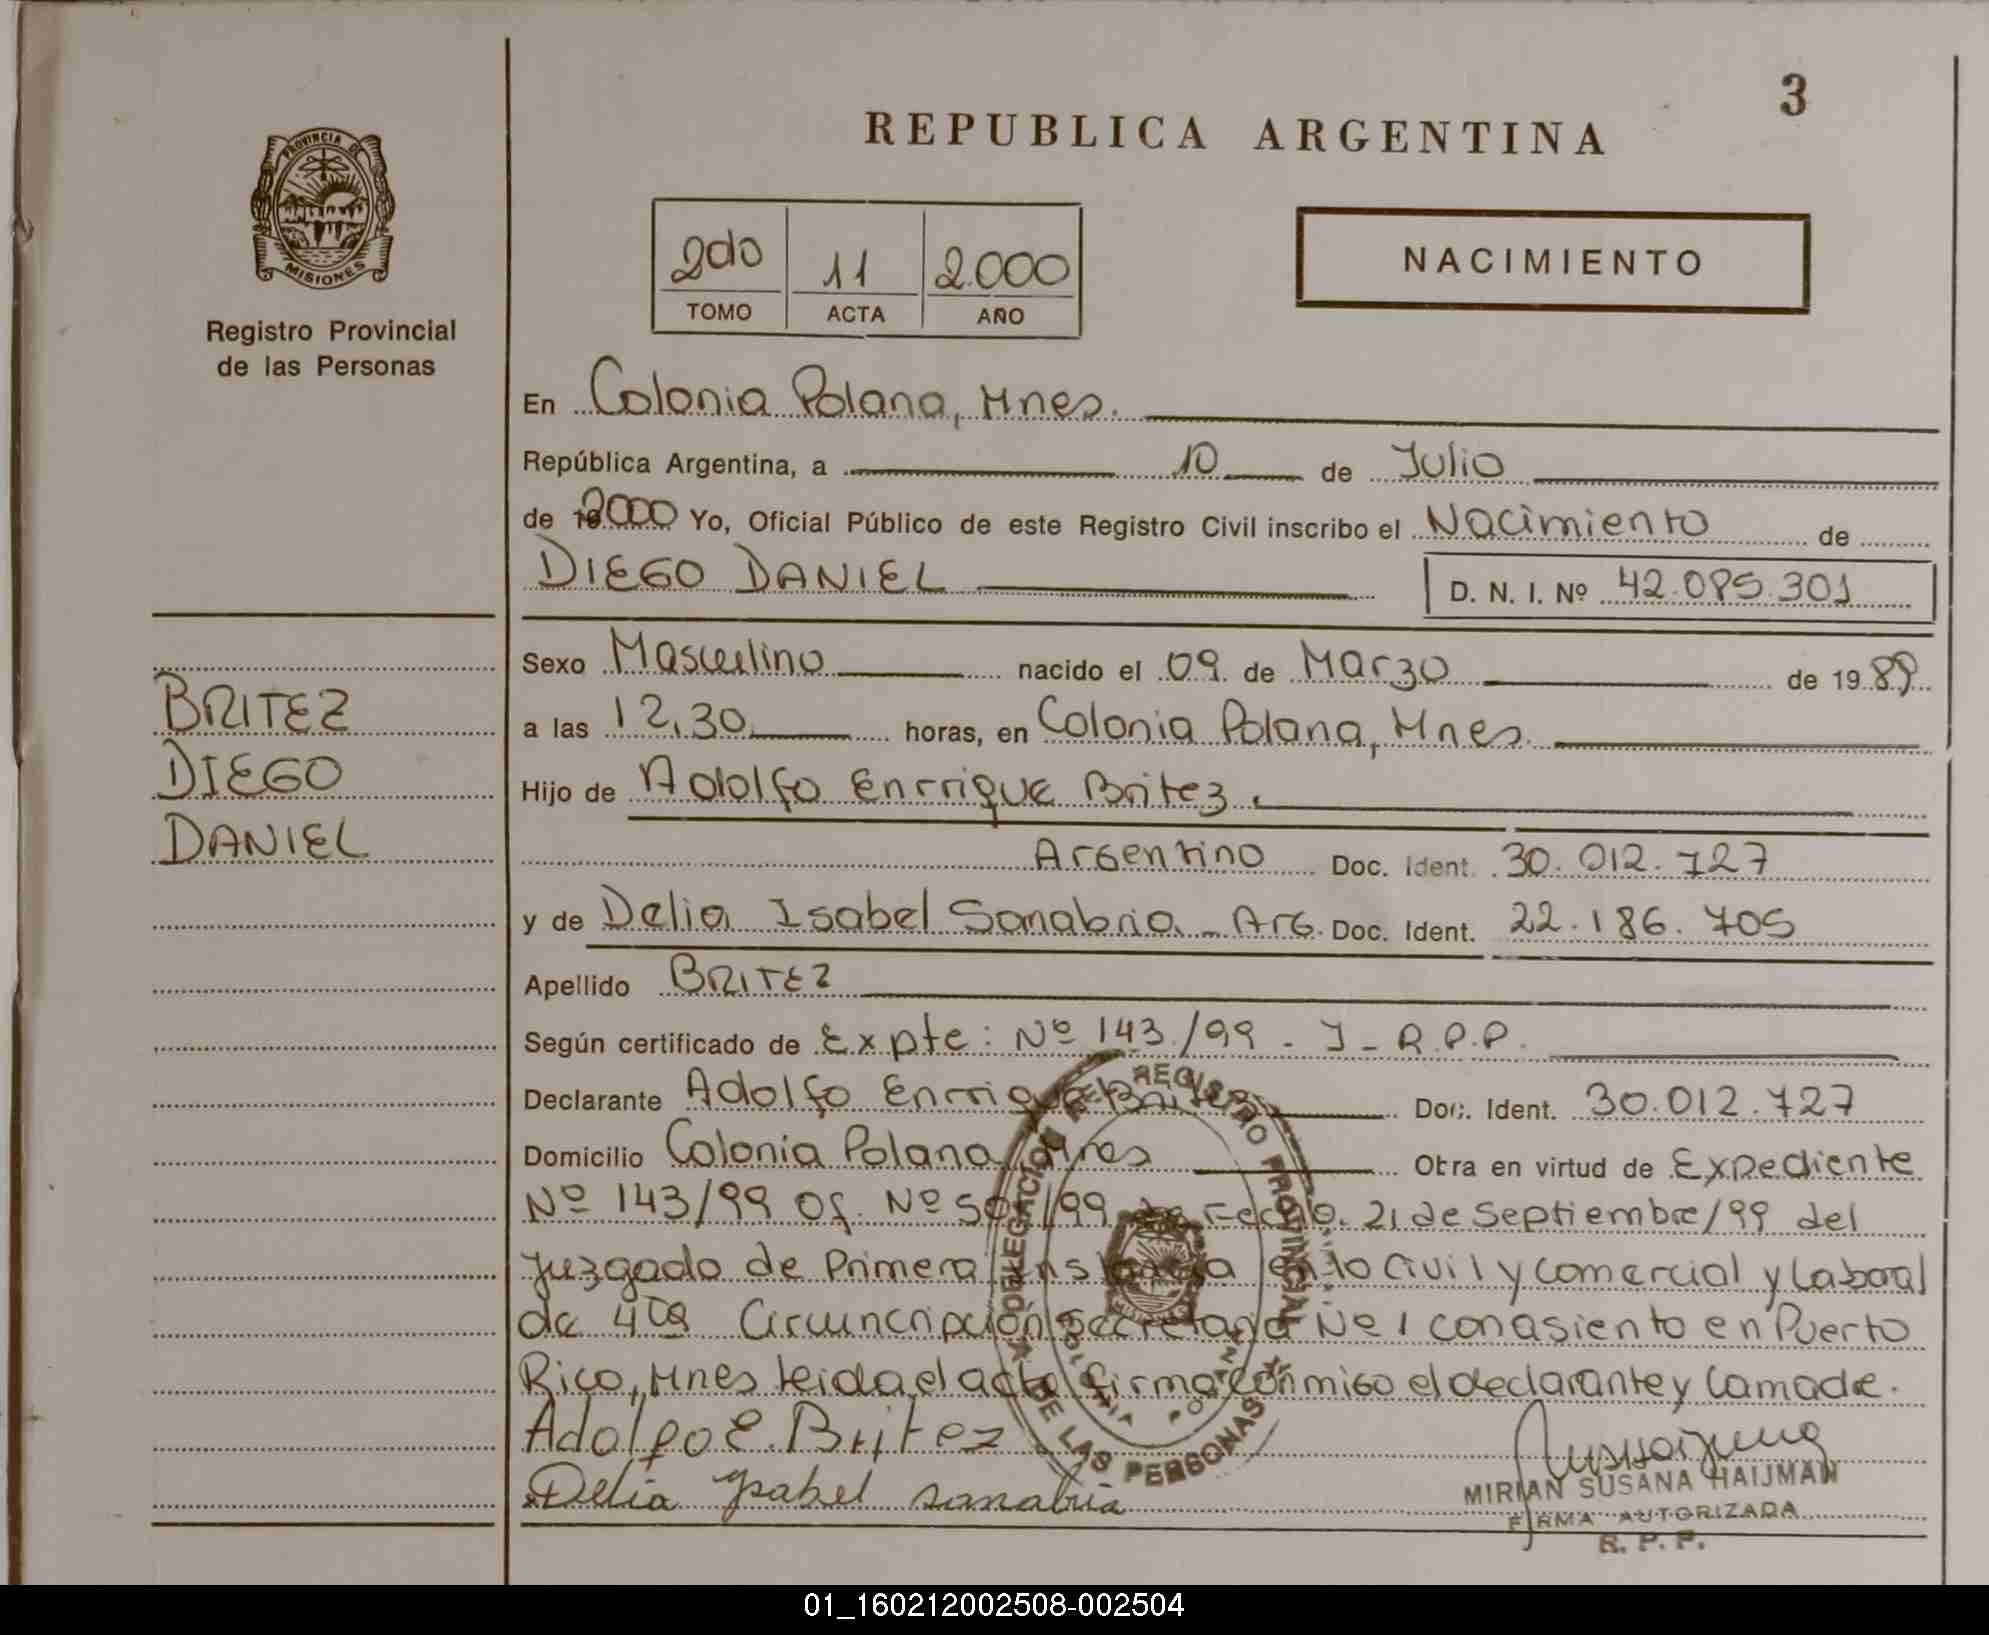 3
REPUBLICA ARGENTINA
PROVINCIA DE
MISIONES
Registro Provincial
de las Personas
2do 11 2.000
TOMO ACTA AÑO
NACIMIENTO
En Colonia Polana, Mnes.
República Argentina, a 10 de Julio
de 2000 Yo, Oficial Público de este Registro Civil inscribo el Nacimiento de
DIEGO DANIEL D. N. I. Nº 42.085.301
BRITEZ
DIEGO
DANIEL
Sexo Masculino nacido el 09 de Marzo de 1989
a las 12,30 horas, en Colonia Polana, Mnes.
Hijo de Adolfo Enrrique Britez.
Argentino Doc. Ident. 30.012.727
y de Delia Isabel Sanabria - Arg. Doc. Ident. 22.186.705
Apellido BRITEZ
Según certificado de Expte: Nº 143/99 - J - R.P.P.
Declarante Adolfo Enrrique Britez Doc. Ident. 30.012.727
Domicilio Colonia Polana, Mnes Otra en virtud de Expediente
Nº 143/99 Of. Nº /99 de fecha 21 de Septiembre/99 del
Juzgado de Primera Instancia en lo Civil y Comercial y Laboral
de 4ta Circuncripción Secretaria Nº 1 con asiento en Puerto
Rico, Mnes leida el acta firma conmigo el declarante y la madre.
Adolfo E. Britez
Delia Ysabel Sanabria
DELEGACION REGISTRO PROVINCIAL DE LAS PERSONAS
COLONIA POLANA
MIRIAN SUSANA HAIJMAN
FIRMA AUTORIZADA
R. P. P.
01_160212002508-002504